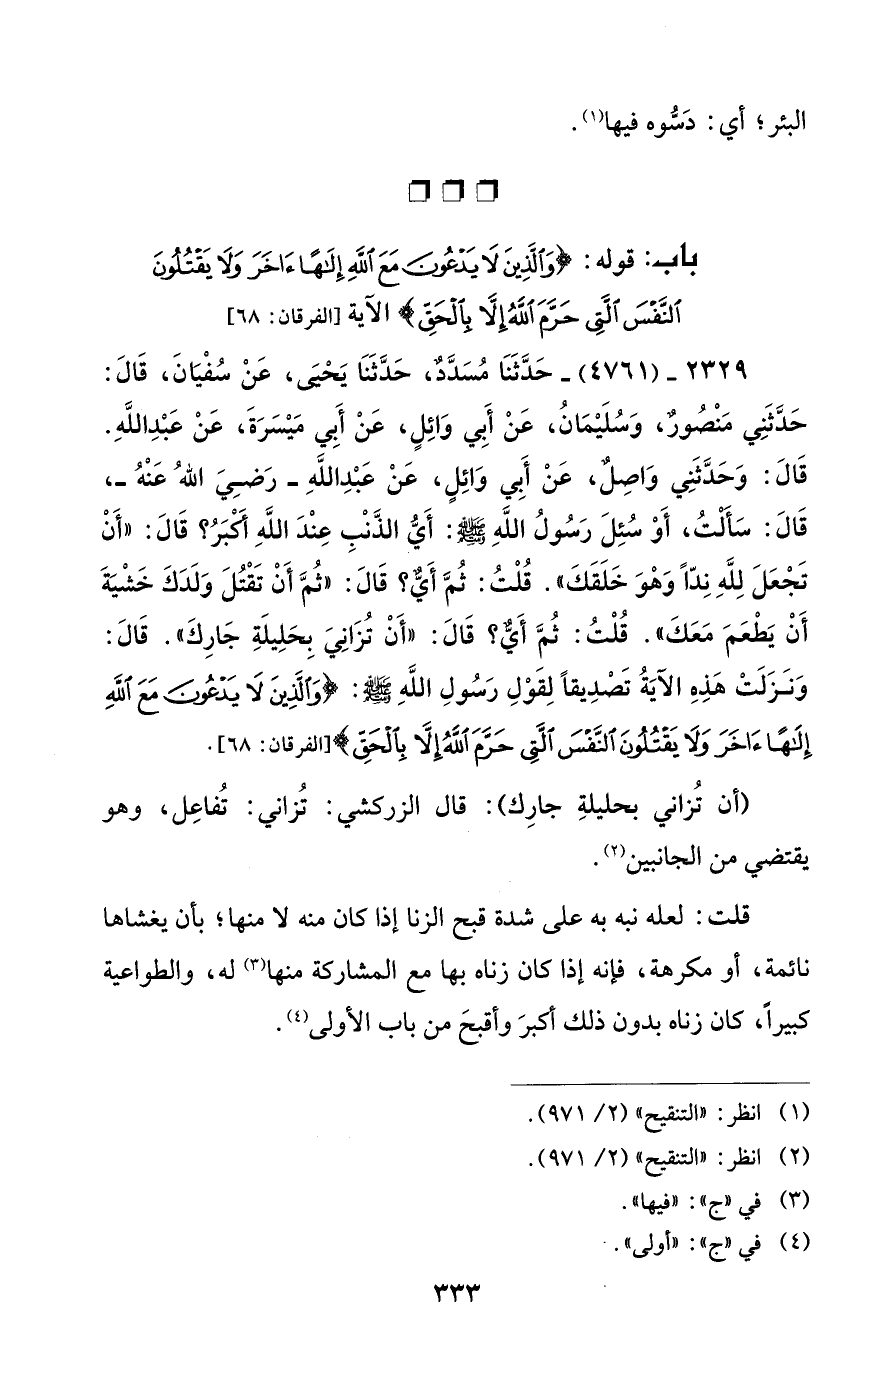 البئر؛ أي: دَسُّوه فيها(١).
باب: قوله: ﴿وَٱلَّذِينَ لَا يَدْعُونَ مَعَ ٱللَّهِ إِلَـٰهًا ءَاخَرَ وَلَا يَقْتُلُونَ
ٱلنَّفْسَ ٱلَّتِى حَرَّمَ ٱللَّهُ إِلَّا بِٱلْحَقِّ﴾ الآية [الفرقان: ٦٨]
٢٣٢٩ ـ (٤٧٦١) ـ حَدَّثَنَا مُسَدَّدٌ، حَدَّثَنَا يَحْيَى، عَنْ سُفْيَانَ، قَالَ:
حَدَّثَنِي مَنْصُورٌ، وَسُلَيْمَانُ، عَنْ أَبِي وَائِلٍ، عَنْ أَبِي مَيْسَرَةَ، عَنْ عَبْدِاللَّهِ.
قَالَ: وَحَدَّثَنِي وَاصِلٌ، عَنْ أَبِي وَائِلٍ، عَنْ عَبْدِاللَّهِ ـ رَضِيَ اللهُ عَنْهُ ـ،
قَالَ: سَأَلْتُ، أَوْ سُئِلَ رَسُولُ اللَّهِ ﷺ: أَيُّ الذَّنْبِ عِنْدَ اللَّهِ أَكْبَرُ؟ قَالَ: «أَنْ
تَجْعَلَ لِلَّهِ نِدّاً وَهْوَ خَلَقَكَ». قُلْتُ: ثُمَّ أَيٌّ؟ قَالَ: «ثُمَّ أَنْ تَقْتُلَ وَلَدَكَ خَشْيَةَ
أَنْ يَطْعَمَ مَعَكَ». قُلْتُ: ثُمَّ أَيٌّ؟ قَالَ: «أَنْ تُزَانِيَ بِحَلِيلَةِ جَارِكَ». قَالَ:
وَنَزَلَتْ هَذِهِ الآيَةُ تَصْدِيقاً لِقَوْلِ رَسُولِ اللَّهِ ﷺ: ﴿وَٱلَّذِينَ لَا يَدْعُونَ مَعَ ٱللَّهِ
إِلَـٰهًا ءَاخَرَ وَلَا يَقْتُلُونَ ٱلنَّفْسَ ٱلَّتِى حَرَّمَ ٱللَّهُ إِلَّا بِٱلْحَقِّ﴾ [الفرقان: ٦٨].
(أن تُزاني بحليلةِ جارِك): قال الزركشي: تُزاني: تُفاعِل، وهو
يقتضي من الجانبين(٢).
قلت: لعله نبه به على شدة قبح الزنا إذا كان منه لا منها؛ بأن يغشاها
نائمة، أو مكرهة، فإنه إذا كان زناه بها مع المشاركة منها(٣) له، والطواعية
كبيراً، كان زناه بدون ذلك أكبرَ وأقبحَ من باب الأولى(٤).
(١) انظر: «التنقيح» (٢/ ٩٧١).
(٢) انظر: «التنقيح» (٢/ ٩٧١).
(٣) في «ج»: «فيها».
(٤) في «ج»: «أولى».
٣٣٣